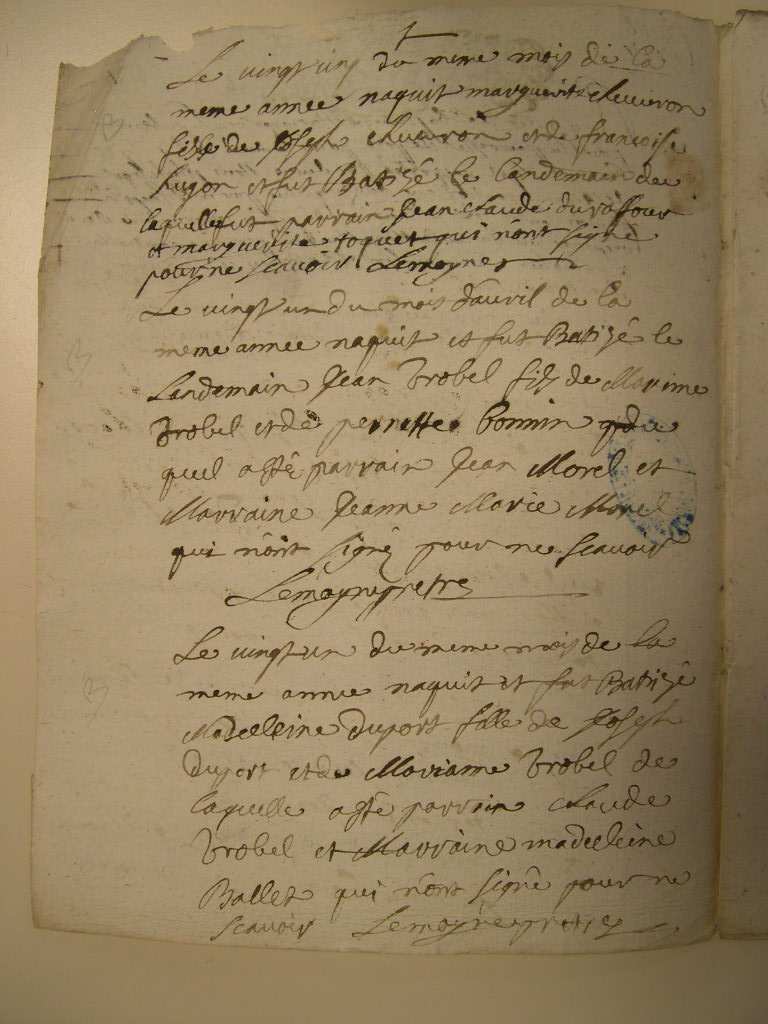 Le vingt un du meme mois de la
meme annee naquit marguerite chevron
fille de Joseph chevron et de francoise
hugon et fut Batizé le landemain de
laquelle fut parrain Jean claude
et marguerite toquet qui nont signé
pour ne scavoir Lemoyne
Le vingt un du mois dauril de la
meme annee naquit et fut Batizé le
Landemain Jean Trobel filz de
Trobel et de perrette bonnin
quel a esté parrain Jean Morel et
Marraine Jeanne Marie Morel
qui nont signé pour ne scavoir
Lemoyne pretre
Le vingt un du meme mois de la
meme annee naquit et fut Batizé
Madeleine duport fille de Joseph
duport et de Marianne Trobel de
laquelle a esté parrain claude
Trobel et Marraine madeleine
Ballet qui nont signé pour ne
scavoir Lemoyne pretre